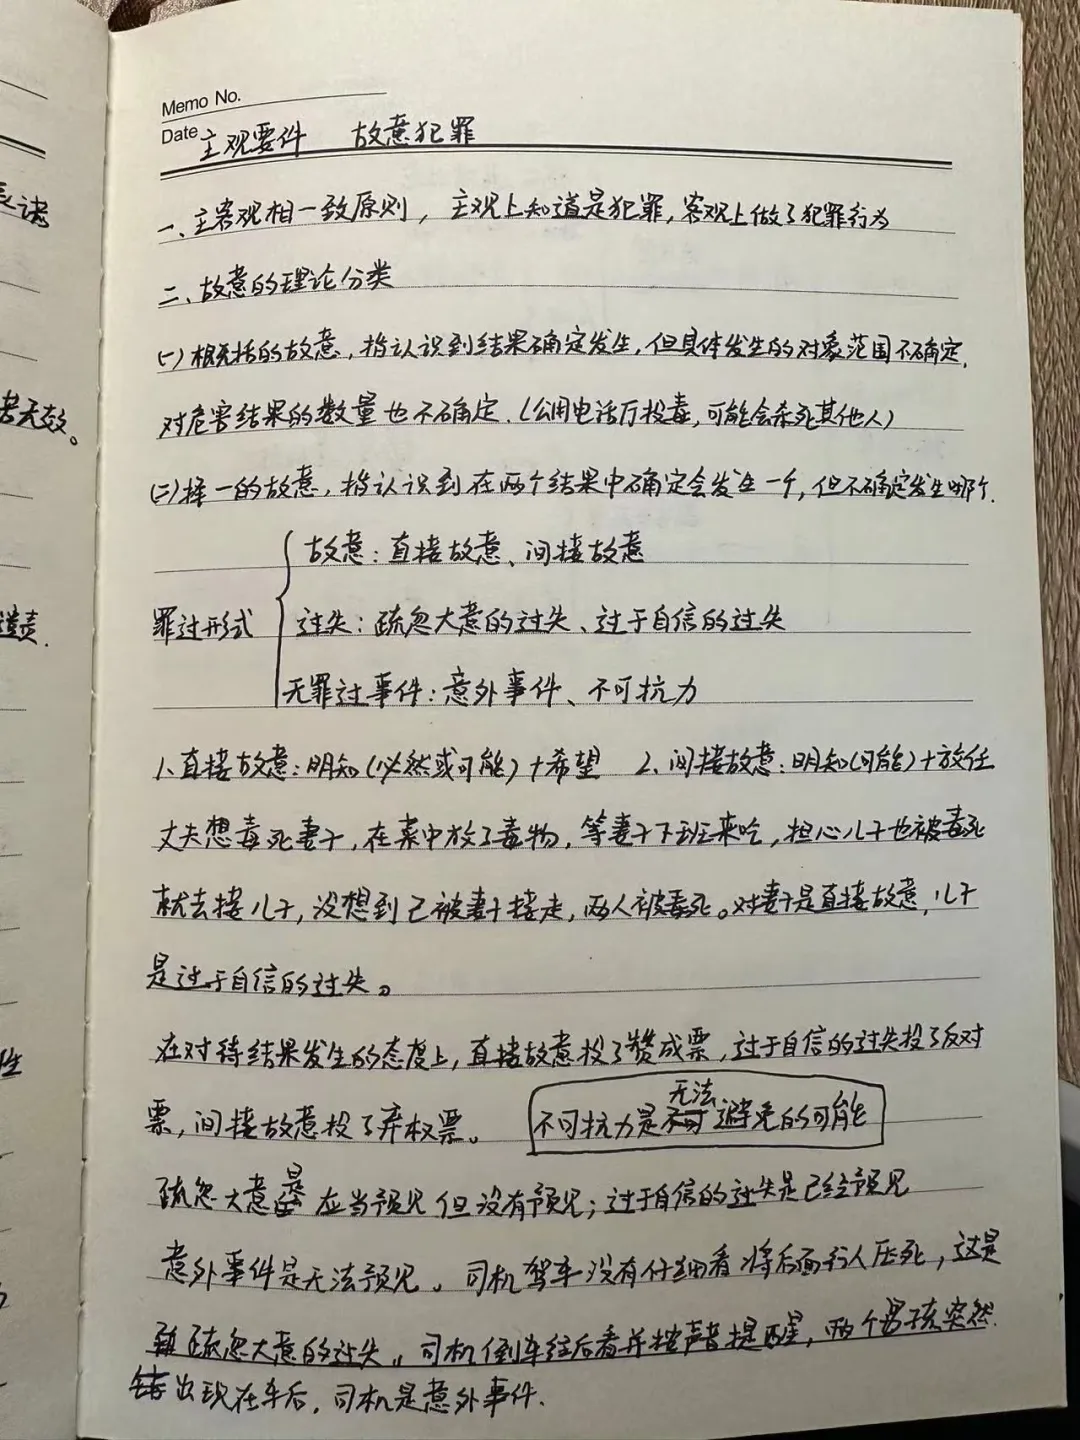 Memo No.
Date 主观要件 故意犯罪
一、主客观相一致原则，主观上知道是犯罪，客观上做了犯罪行为
二、故意的理论分类
(一)概括的故意，指认识到结果确定发生，但具体发生的对象范围不确定，
对危害结果的数量也不确定.（公用电话厅投毒，可能会杀死其他人）
(二)择一的故意，指认识到在两个结果中确定会发生一个，但不确定发生哪个.
故意：直接故意、间接故意
罪过形式 过失：疏忽大意的过失、过于自信的过失
无罪过事件：意外事件、不可抗力
1、直接故意：明知(必然或可能)+希望 2、间接故意：明知(可能)+放任
丈夫想毒死妻子，在菜中放了毒物，等妻子下班来吃，担心儿子也被毒死
就去接儿子，没想到已被妻子接走，两人被毒死。对妻子是直接故意，儿子
是过于自信的过失。
在对待结果发生的态度上，直接故意投了赞成票，过于自信的过失投了反对
票，间接故意投了弃权票。 不可抗力是无法避免的可能
疏忽大意是应当预见但没有预见；过于自信的过失是已经预见
意外事件是无法预见。司机驾车没有仔细看将后面行人压死，这是
疏忽大意的过失。司机倒车往后看并按声音提醒，两个男孩突然
出现在车后，司机是意外事件.
老无效。
遣责.
性